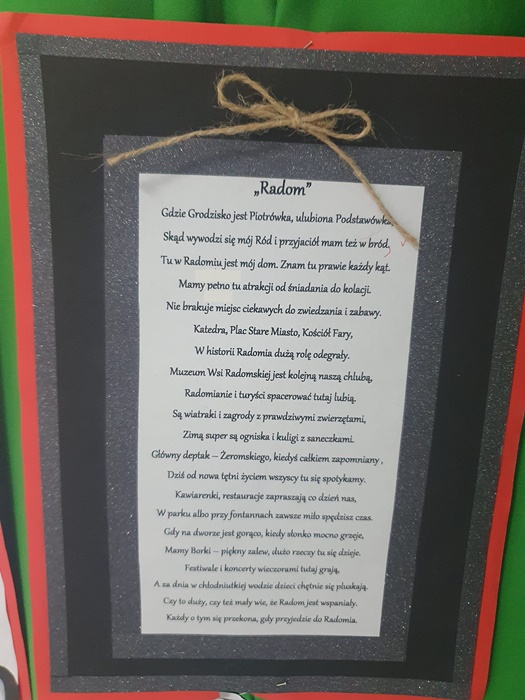 „Radom”
Gdzie Grodzisko jest Piotrówka, ulubiona Podstawówka,
Skąd wywodzi się mój Ród i przyjaciół mam też w bród,
Tu w Radomiu jest mój dom. Znam tu prawie każdy kąt.
Mamy pełno tu atrakcji od śniadania do kolacji.
Nie brakuje miejsc ciekawych do zwiedzania i zabawy.
Katedra, Plac Stare Miasto, Kościół Fary,
W historii Radomia dużą rolę odegrały.
Muzeum Wsi Radomskiej jest kolejną naszą chlubą,
Radomianie i turyści spacerować tutaj lubią.
Są wiatraki i zagrody z prawdziwymi zwierzętami,
Zimą super są ogniska i kuligi z saneczkami.
Główny deptak – Żeromskiego, kiedyś całkiem zapomniany,
Dziś od nowa tętni życiem wszyscy tu się spotykamy.
Kawiarenki, restauracje zapraszają co dzień nas,
W parku albo przy fontannach zawsze miło spędzisz czas.
Gdy na dworze jest gorąco, kiedy słonko mocno grzeje,
Mamy Borki – piękny zalew, dużo rzeczy tu się dzieje.
Festiwale i koncerty wieczorami tutaj grają,
A za dnia w chłodniutkiej wodzie dzieci chętnie się pluskają.
Czy to duży, czy też mały wie, że Radom jest wspaniały.
Każdy o tym się przekona, gdy przyjedzie do Radomia.